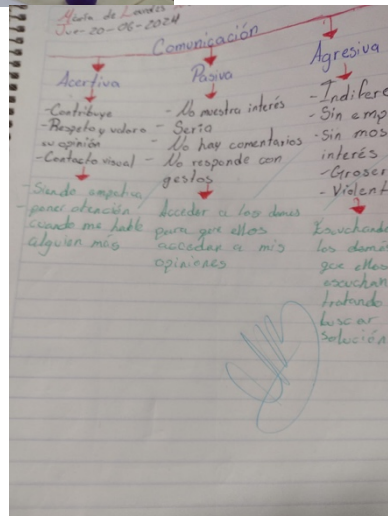 María de Lourdes
Jue-20-06-2024
Comunicación
Acertiva
- Contribuye
- Respeto y valoro
su opinión
- Contacto visual
- Siendo empativa
- poner atención
cuando me hable
alguien más
Pasiva
- No muestra interés
- Seria
- No hay comentarios
- No responde con
gestos
Acceder a los demás
para que ellos
accedan a mis
opiniones
Agresiva
- Indifere
- Sin emp
- Sin mos
interés
- Groser
- Violent
Escuchando
los demás
que ellos
escuchan
tratando
buscar
solución